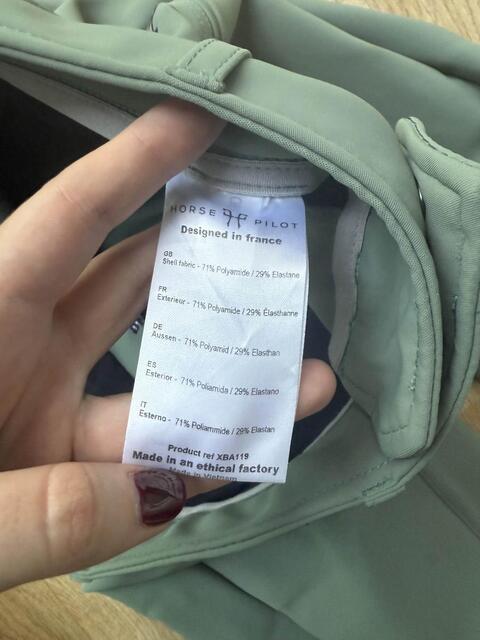 HORSE PILOT
Designed in france
GB
Shell fabric - 71% Polyamide / 29% Elastane
FR
Exterieur - 71% Polyamide / 29% Élasthanne
DE
Aussen - 71% Polyamid / 29% Elasthan
ES
Esterior - 71% Poliamida / 29% Elastano
IT
Esterno - 71% Poliammide / 29% Elastan
Product ref XBA119
Made in an ethical factory
Made in Vietnam